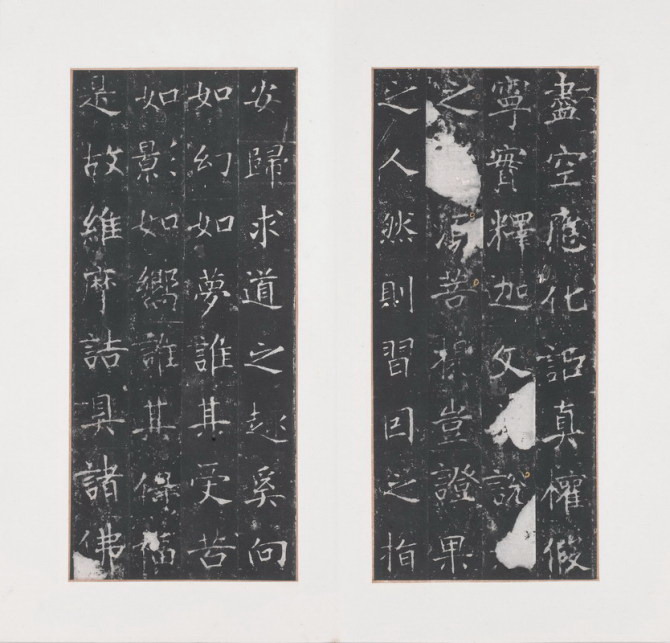 盡空應化詎真權假
寧實釋迦文說
之菩提豈證果
之人然則習因之指
安歸求道之趣奚向
如幻如夢誰其受苦
如影如嚮誰其得福
是故維摩詰具諸佛